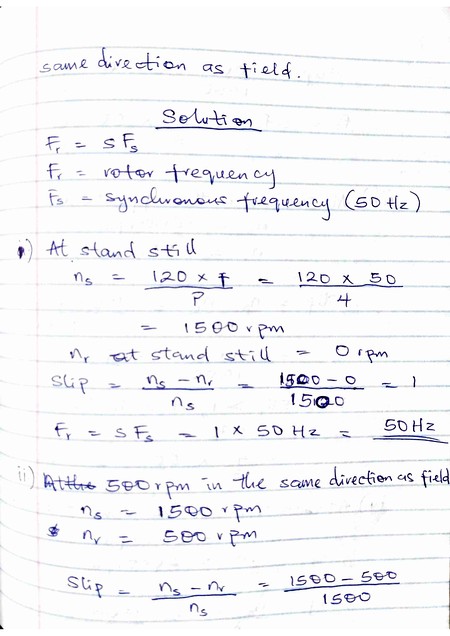 same direction as field.
Solution
Fr = sFs
Fr = rotor frequency
Fs = synchronous frequency (50 Hz)
i) At stand still
ns = 120 × f / P = 120 × 50 / 4
= 1500 rpm
nr at stand still = 0 rpm
Slip = ns - nr / ns = 1500 - 0 / 1500 = 1
Fr = sFs = 1 × 50 Hz = 50 Hz
ii) At the 500 rpm in the same direction as field
ns = 1500 rpm
nr = 500 rpm
Slip = ns - nr / ns = 1500 - 500 / 1500